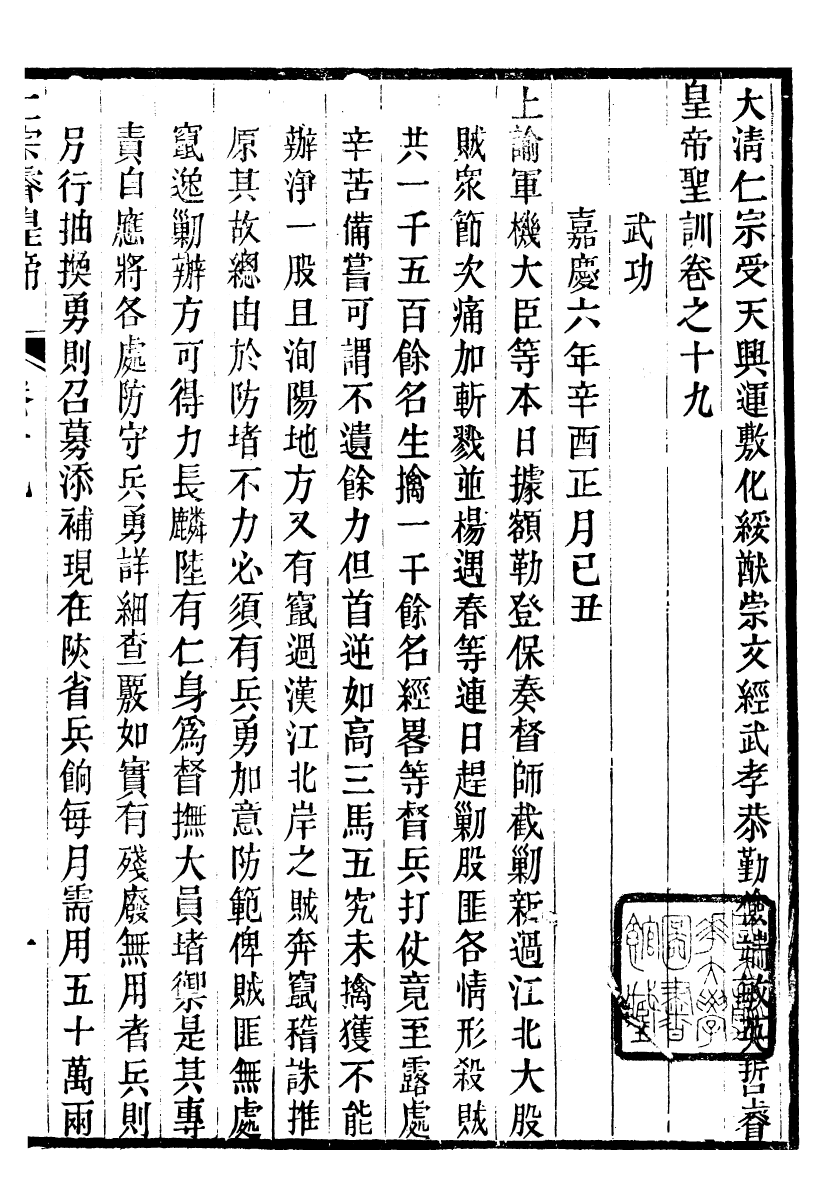 大淸仁宗受天興運敷化綏猷崇文經武孝恭勤儉端敏英哲睿
皇帝聖訓卷之十九
武功
嘉慶六年辛酉正月己丑
上諭軍機大臣等本日據額勒登保奏督師截剿新過江北大股
賊眾節次痛加斬戮並楊遇春等連日趕剿股匪各情形殺賊
共一千五百餘名生擒一千餘名經畧等督兵打仗竟至露處
辛苦備嘗可謂不遺餘力但首逆如高三馬五究未擒獲不能
辦淨一股且洵陽地方又有竄過漢江北岸之賊奔竄稽誅推
原其故總由於防堵不力必須有兵勇加意防範俾賊匪無處
竄逸剿辦方可得力長麟陸有仁身爲督撫大員堵禦是其專
責自應將各處防守兵勇詳細查覈如實有殘廢無用者兵則
另行抽換勇則召募添補現在陝省兵餉每月需用五十萬兩
仁宗睿皇帝 卷十九 一